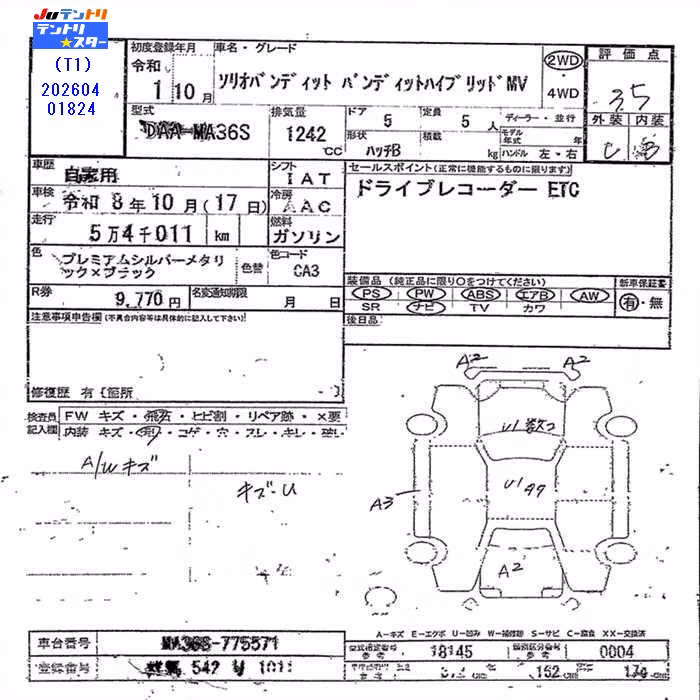 JUテントリ
テントリ★スター
(T1)
202604
01824
初度登録年月
令和
1 10月
車名・グレード
ソリオバンディット バンディットハイブリッドMV
2WD
・
4WD
評価点
3.5
外装 内装
C B
型式
DAA-MA36S
排気量
1242 cc
ドア 5
定員 5 人
形状 ハッチB
積載 kg
ディーラー・並行
モデル年式 年
ハンドル 左・右
車歴 自家用
シフト IAT
車検 令和 8年10月(17日)
冷房 AAC
走行 5万4千011 km
燃料 ガソリン
色 プレミアムシルバーメタリック×ブラック
色替
色コード CA3
R券 9,770円
名変通知期限 月 日
セールスポイント(正常に機能するものに限ります)
ドライブレコーダー ETC
装備品 (純正品に限り○をつけてください)
新車保証書
PS PW ABS エアB AW
SR ナビ TV カワ
有・無
後日品
注意事項申告欄(不具合内容等は具体的に記入して下さい)
修復歴 有〔箇所 〕
検査員記入欄
FW キズ・飛石・ヒビ割・リペア跡・×要
内装 キズ・汚・コゲ・穴・スレ・キレ・破レ
A/Wキズ
キズ-U
A2
A2
U1数コ
A3
A2
A-キズ E-エクボ U-凹み W-補修跡 S-サビ C-腐食 XX-交換済
車台番号 MA36S-775571
登録番号 群馬 542
型式指定番号 参考 18145
類別区分番号 参考 0004
152 cm
170 cm